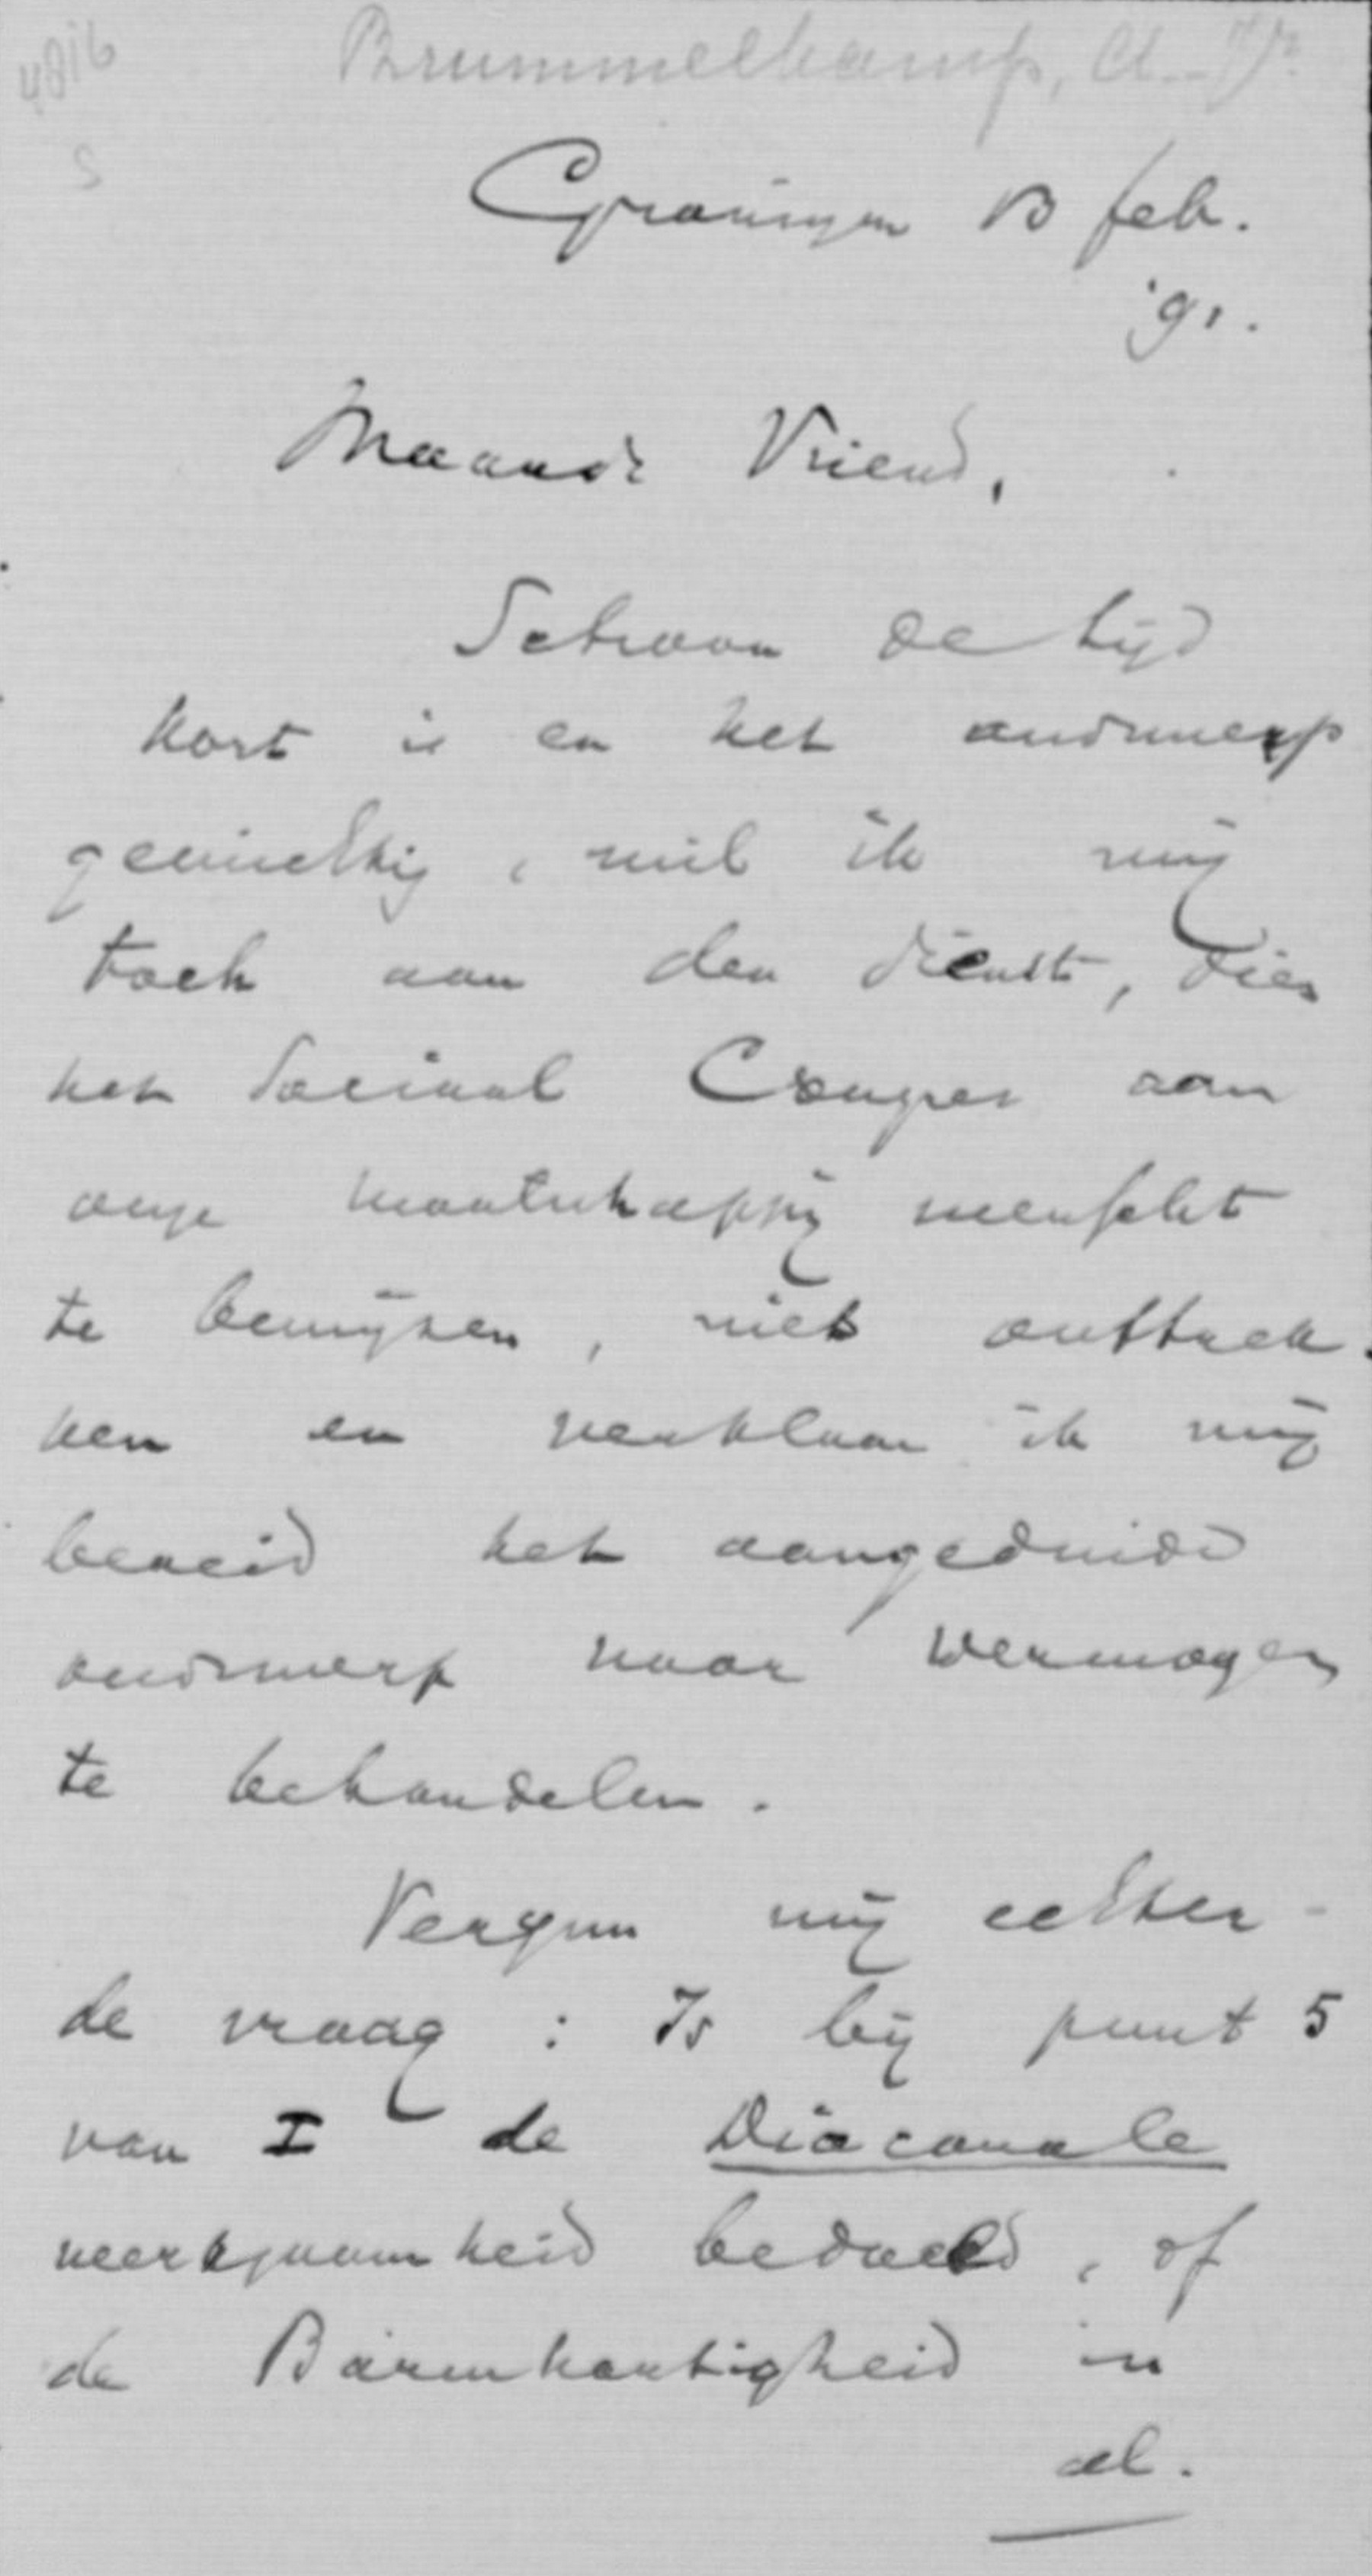 4816
Brummelkamp, A. Jr.
S
Groningen 13 feb.
'91.
Waarde Vriend,
Schoon de tijd
kort is en het onderwerp
gewichtig, wil ik mij
toch aan den dienst, dien
het Sociaal Congres aan
onze maatschappij wenscht
te bewijzen, niet onttrek-
ken en verklaar ik mij
bereid het aangeduide
onderwerp naar vermogen
te behandelen.
Vergun mij echter
de vraag : Is bij punt 5
van I de Diaconale
werkzaamheid bedoeld, of
de Barmhartigheid in
al.